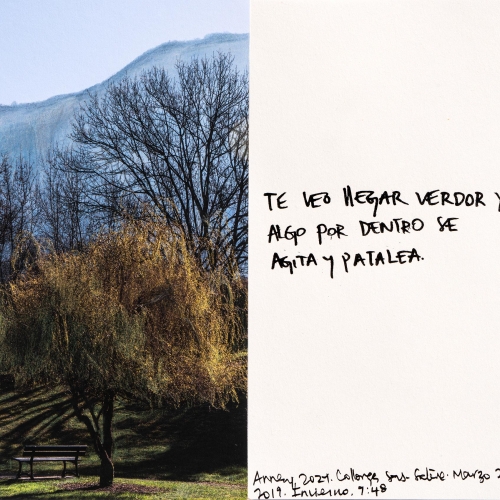 TE VEO LLEGAR VERDOR Y
ALGO POR DENTRO SE
AGITA Y PATALEA.
Annecy, 2021. Collonges sous Salève. Marzo 2
2019. Invierno, 7:48